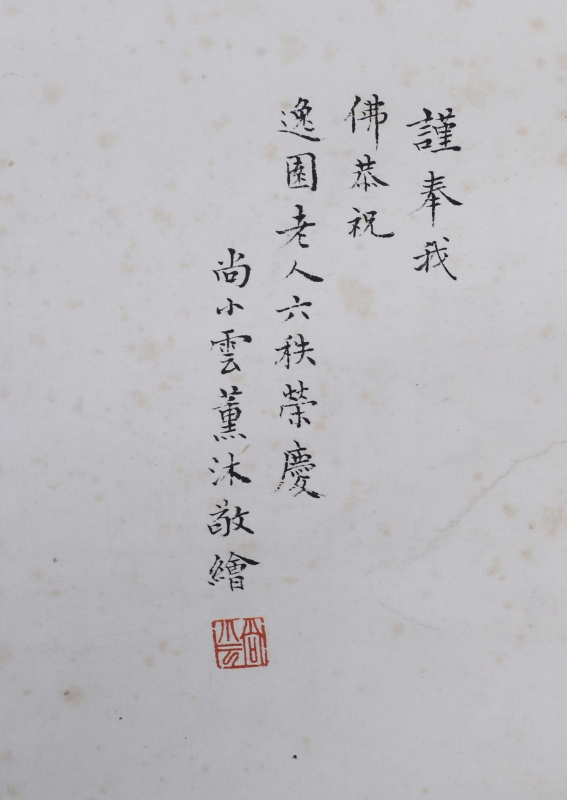 謹奉我
佛恭祝
逸園老人六秩榮慶
尚小雲薰沐敬繪
尚小云